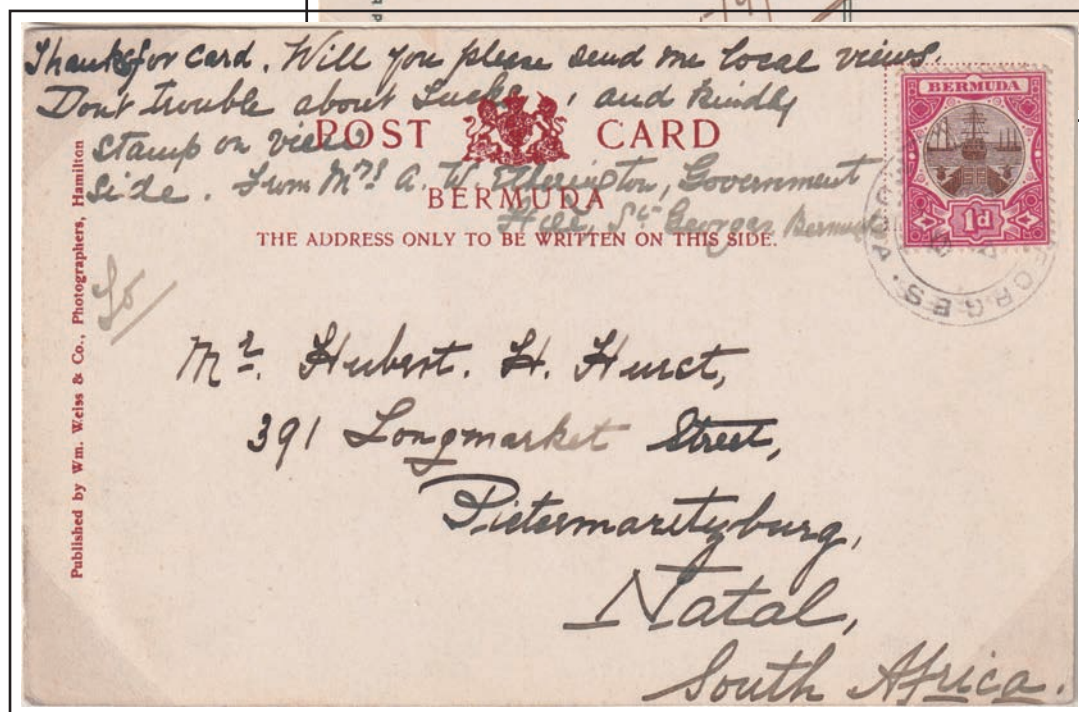 Thanks for card. Will you please send me local views.
Don't trouble about Sucks, and kindly
stamp on view
side. From Mrs A. W. Etherington, Government
Hill, St. Georges Bermuda
POST CARD
BERMUDA
THE ADDRESS ONLY TO BE WRITTEN ON THIS SIDE.
Published by Wm. Weiss & Co., Photographers, Hamilton
BERMUDA
1d
Mr. Hubert. H. Hurst,
391 Longmarket Street,
Pietermaritzburg,
Natal,
South Africa.